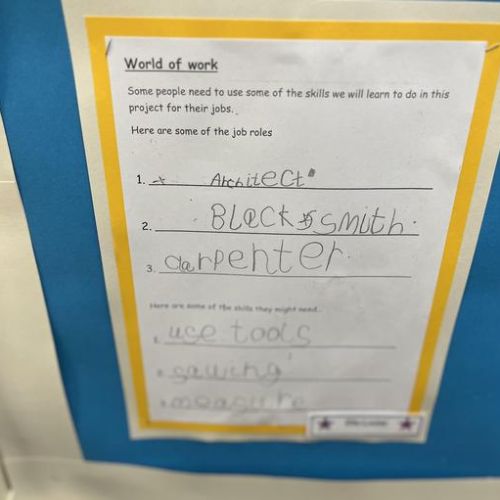 World of work
Some people need to use some of the skills we will learn to do in this
project for their jobs.
Here are some of the job roles
1. Architect
2. Blacksmith.
3. carpenter
Here are some of the skills they might need
1. use tools
2. sawing
3. measure